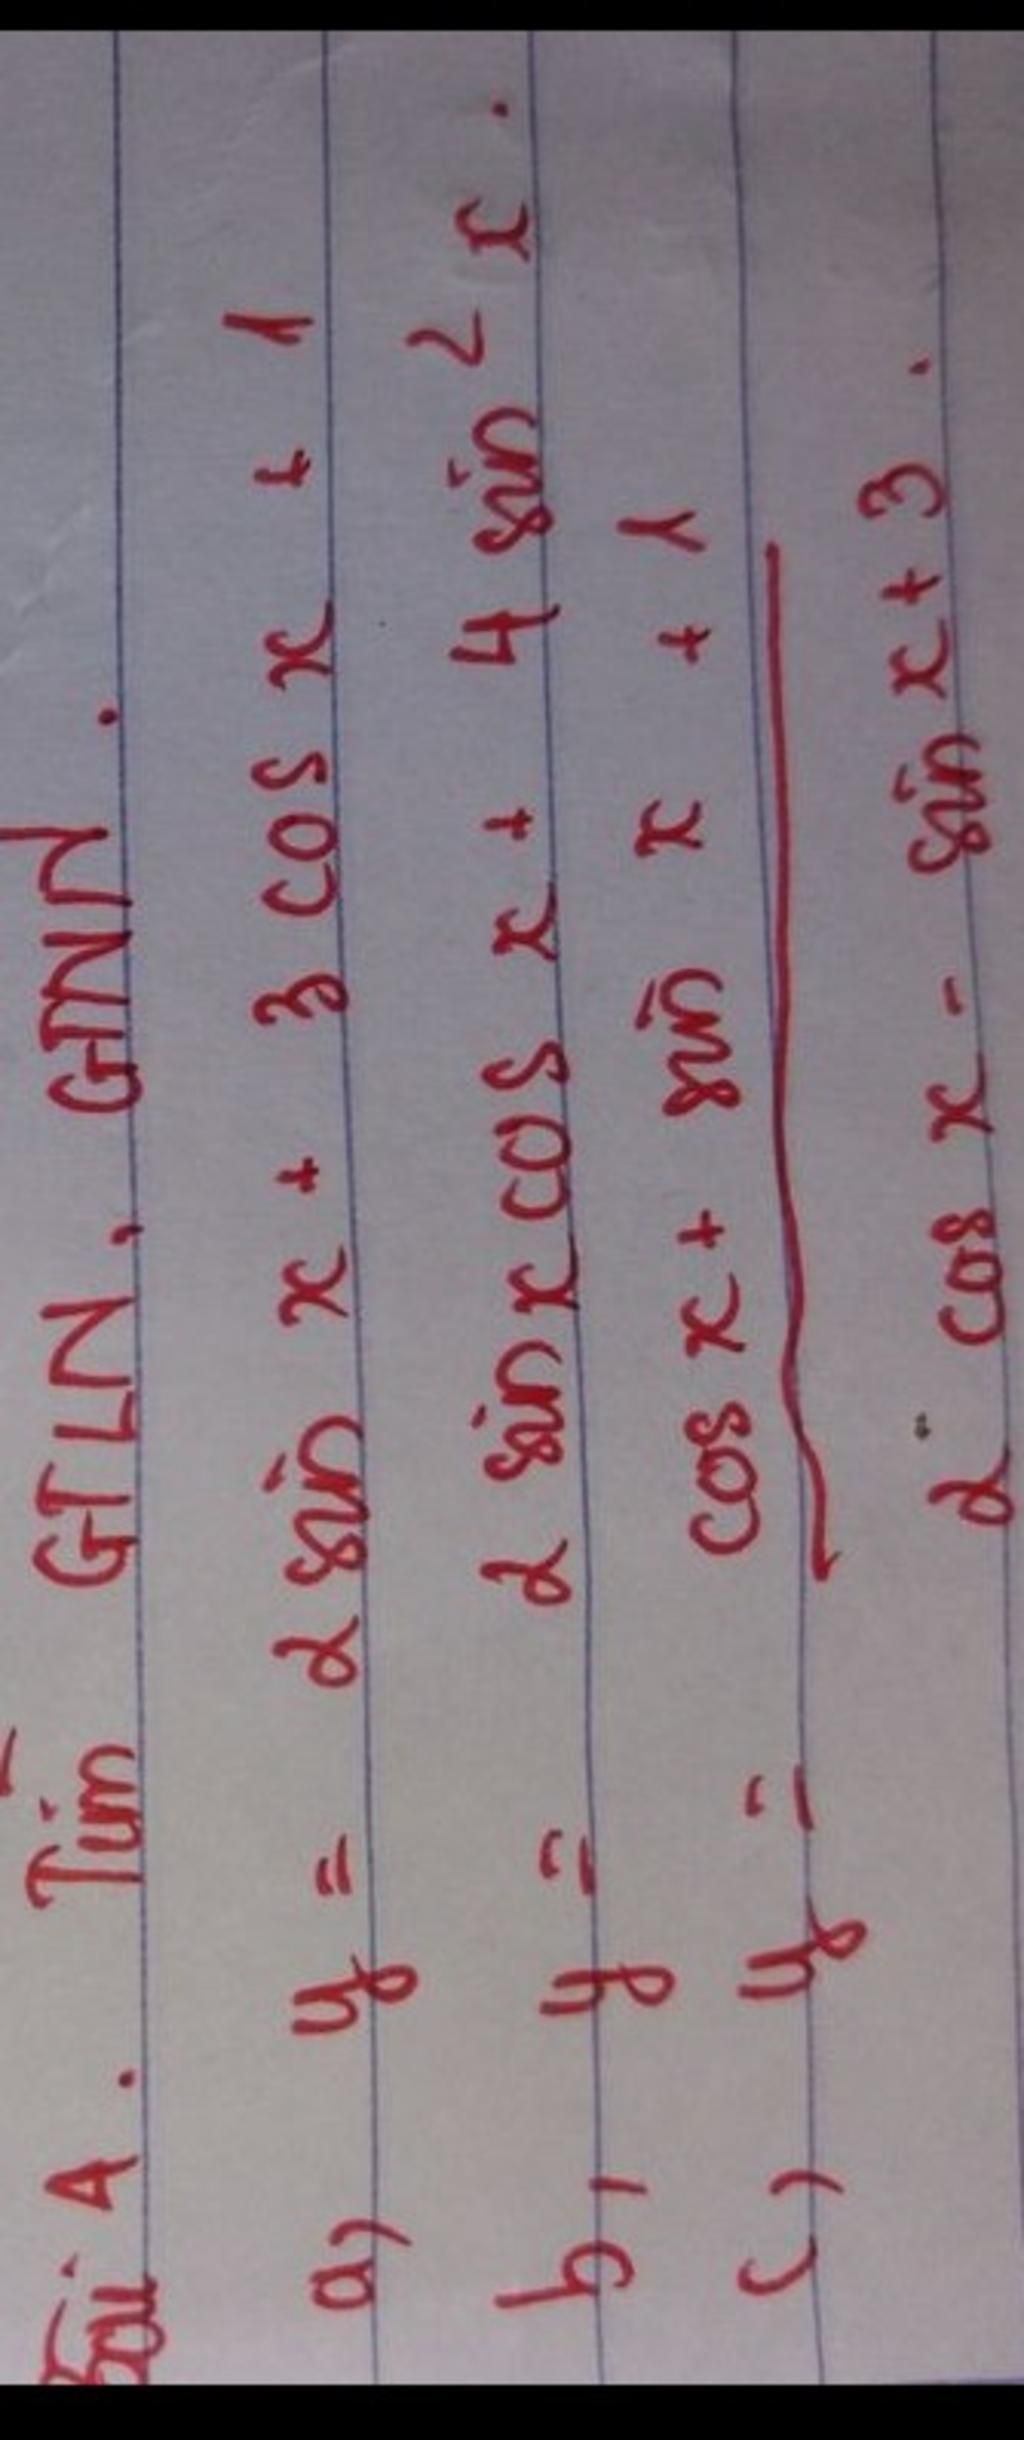 Bài 1. Tìm GTLN, GTNN.
a, y = 2 sin x + 3 cos x + 1
b, y = 2 sin x cos x + 4 sin² x.
c, y = cos x + sin x + 1
2 cos x - sin x + 3.